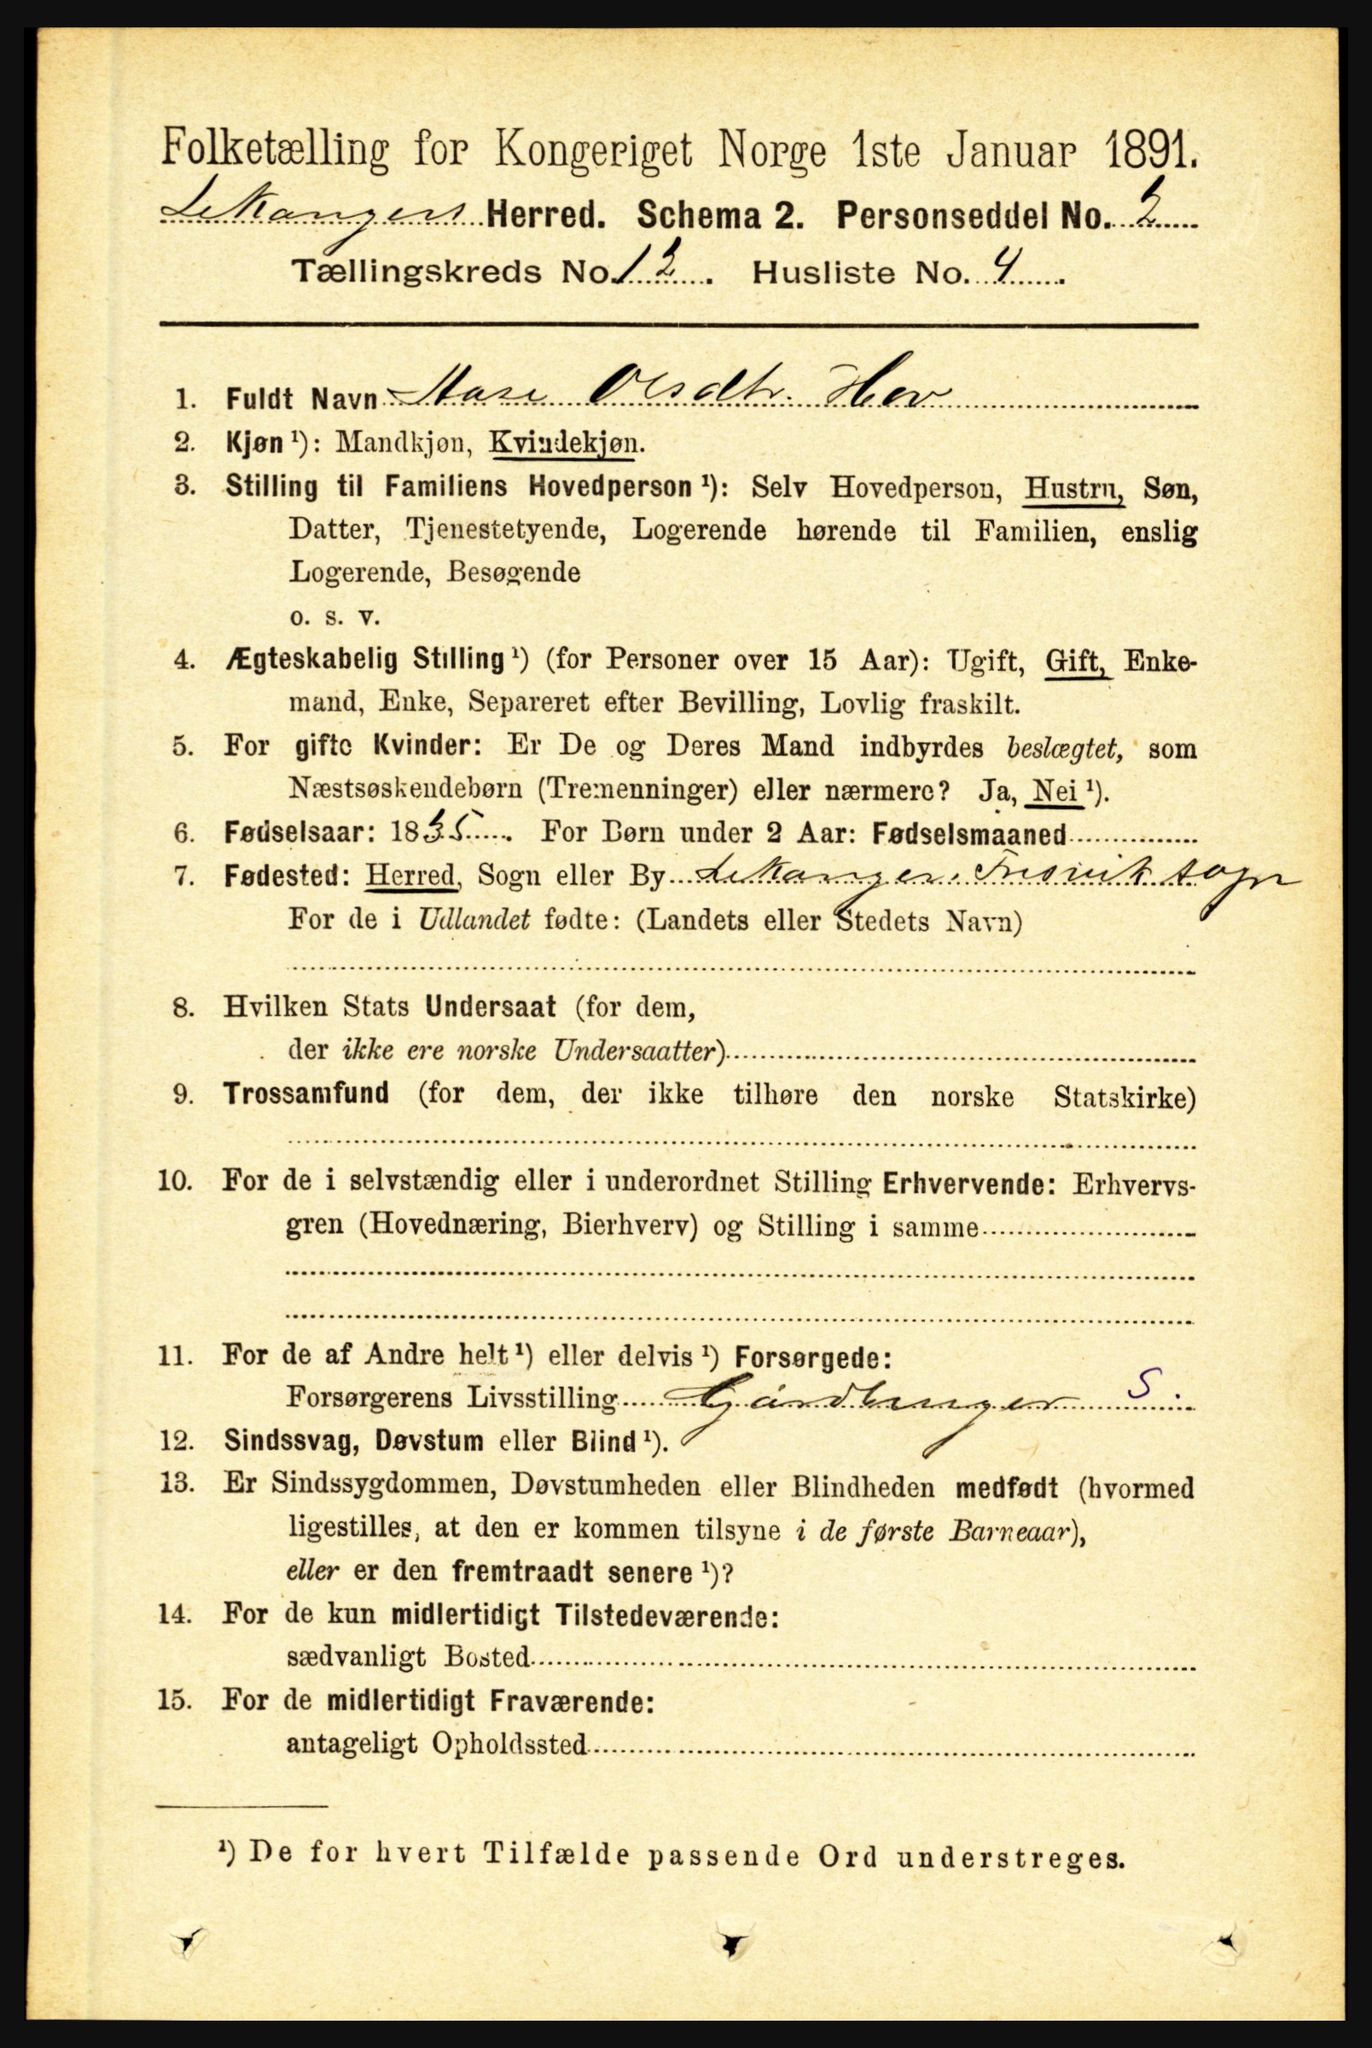 Folketælling for Kongeriget Norge 1ste Januar 1891.
Lekangers Herred. Schema 2. Personseddel No. 2
Tællingskreds No. 12. Husliste No. 4.
1. Fuldt Navn Aase Olsdtr. Hov
2. Kjøn ¹): Mandkjøn, Kvindekjøn.
3. Stilling til Familiens Hovedperson ¹): Selv Hovedperson, Hustru, Søn,
Datter, Tjenestetyende, Logerende hørende til Familien, enslig
Logerende, Besøgende
o. s. v.
4. Ægteskabelig Stilling ¹) (for Personer over 15 Aar): Ugift, Gift, Enke-
mand, Enke, Separeret efter Bevilling, Lovlig fraskilt.
5. For gifte Kvinder: Er De og Deres Mand indbyrdes beslægtet, som
Næstsøskendebørn (Tremenninger) eller nærmere? Ja, Nei ¹).
6. Fødselsaar: 1835. For Børn under 2 Aar: Fødselsmaaned
7. Fødested: Herred, Sogn eller By Lekanger, Fresvik sogn
For de i Udlandet fødte: (Landets eller Stedets Navn)
8. Hvilken Stats Undersaat (for dem,
der ikke ere norske Undersaatter)
9. Trossamfund (for dem, der ikke tilhøre den norske Statskirke)
10. For de i selvstændig eller i underordnet Stilling Erhvervende: Erhvervs-
gren (Hovednæring, Bierhverv) og Stilling i samme
11. For de af Andre helt ¹) eller delvis ¹) Forsørgede:
Forsørgerens Livsstilling Gårdbruger S.
12. Sindssvag, Døvstum eller Blind ¹).
13. Er Sindssygdommen, Døvstumheden eller Blindheden medfødt (hvormed
ligestilles, at den er kommen tilsyne i de første Barneaar),
eller er den fremtraadt senere ¹)?
14. For de kun midlertidigt Tilstedeværende:
sædvanligt Bosted
15. For de midlertidigt Fraværende:
antageligt Opholdssted
¹) De for hvert Tilfælde passende Ord understreges.